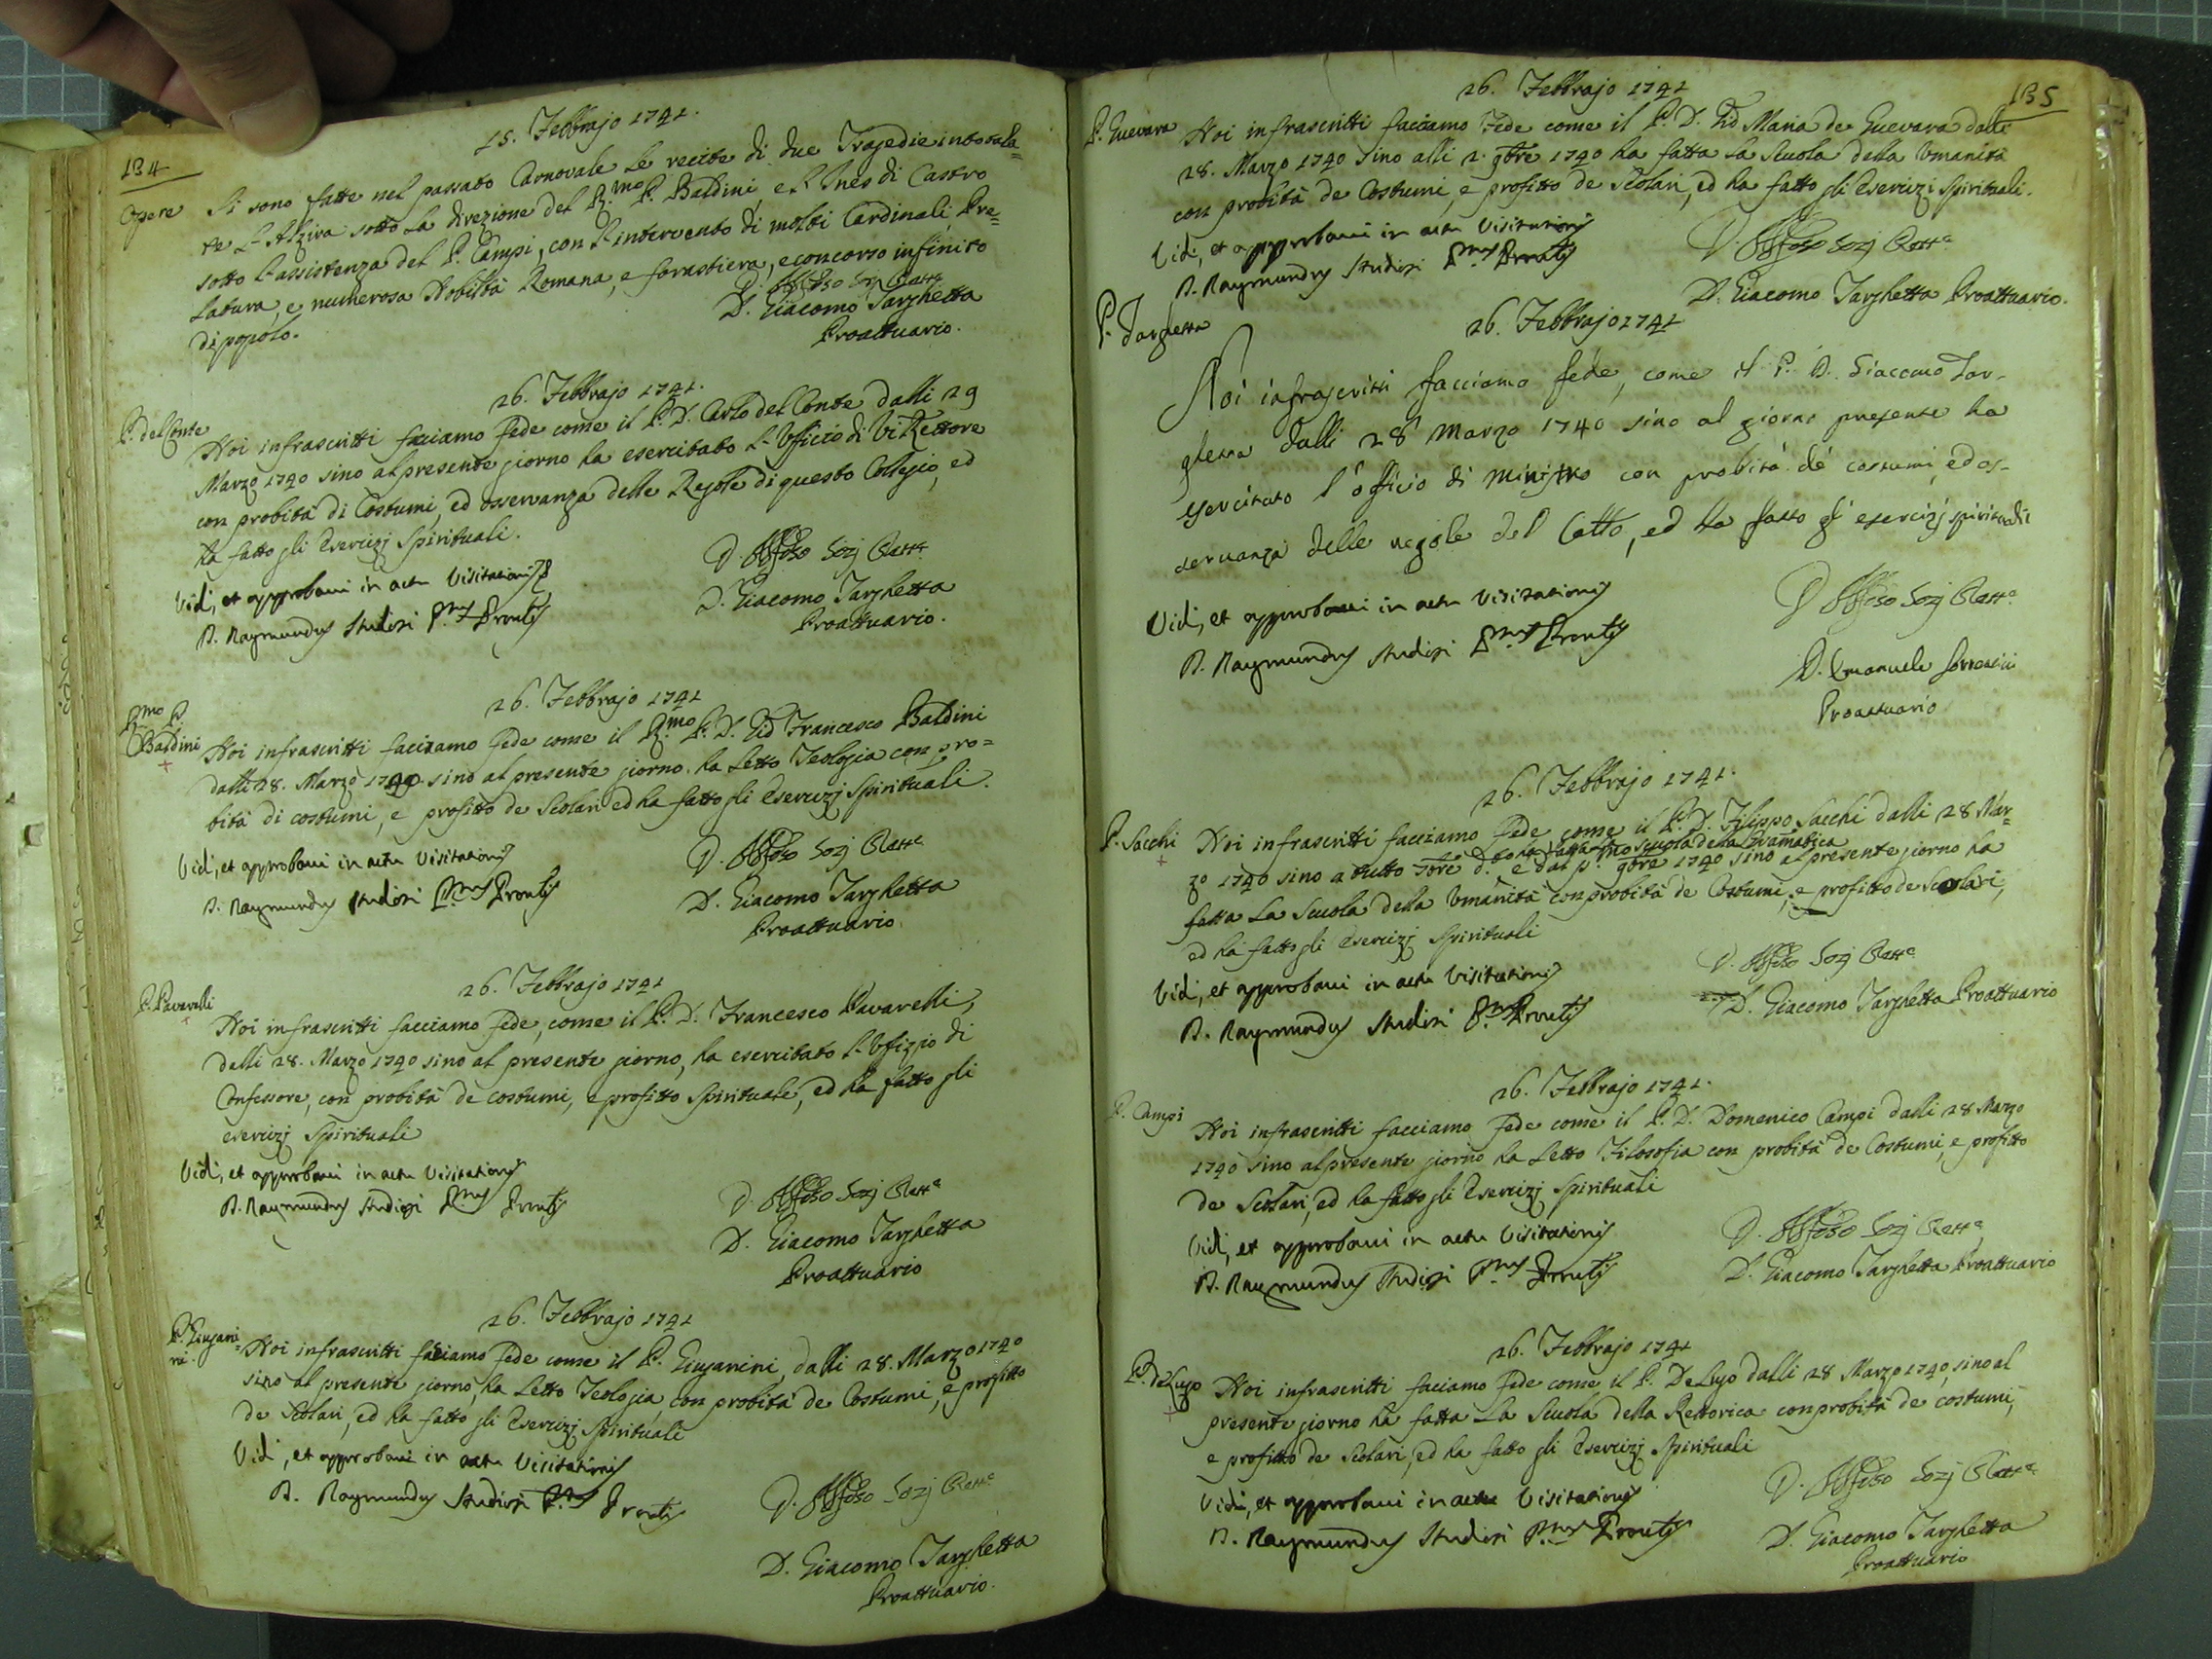 134
15. Febbrajo 1741.
Opere
Si sono fatte nel passato Carnovale le recite di due Tragedie intotola=
te L'Alzira sotto la direzione del R.mo P. Baldini, e L'Ines di Castro
sotto l'assistenza del P. Campi, con l'intervento di molti Cardinali, Pre=
latura, e numerosa Nobiltà Romana, e forastiera, e concorso infinito
di popolo.
D. Alfonso Sozj Rett.e
D. Giacomo Targhetta
Proattuario.
26. Febbrajo 1741.
P. del Conte
Noi infrascritti facciamo fede come il P. D. Carlo del Conte dalli 29
Marzo 1740 sino al presente giorno ha esercitato l'Ufficio di ViRettore
con probità di Costumi, ed osservanza delle Regole di questo Collegio, ed
ha fatto gli Esercizj Spirituali.
Vidi, et approbavi in actu Visitationis
D. Alfonso Sozj Rett.e
D. Raymundus Studiosi P.tus Prov.lis
D. Giacomo Targhetta
Proattuario.
26. Febbrajo 1741
R.mo P.
Baldini
Noi infrascritti facciamo fede come il R.mo P. D. Gio Francesco Baldini
dalli 28. Marzo 1740 sino al presente giorno ha letto Teologia con pro=
bità di costumi, e profitto de Scolari ed ha fatto gli Esercizj Spirituali.
Vidi, et approbavi in actu Visitationis
D. Alfonso Sozj Rett.e
D. Raymundus Studiosi P.tus Prov.lis
D. Giacomo Targhetta
Proattuario.
26. Febbrajo 1741
P. Pavarelli
Noi infrascritti facciamo fede, come il P. D. Francesco Pavarelli,
dalli 28. Marzo 1740 sino al presente giorno, ha esercitato l'Ufizio di
Confessore, con probità de costumi, e profitto spirituale, ed ha fatto gli
esercizj Spirituali
Vidi, et approbavi in actu Visitationis
D. Raymundus Studiosi P.tus Prov.lis
D. Alfonso Sozj Rett.e
D. Giacomo Targhetta
Proattuario
26. Febbrajo 1741
P. Giugani=
ni.
Noi infrascritti facciamo fede come il P. Giuganini, dalli 28. Marzo 1740
sino al presente giorno, ha letto Teologia con probità de Costumi, e profitto
de Scolari, ed ha fatto gli Esercizj Spirituali
Vidi, et approbavi in actu Visitationis
D. Raymundus Studiosi P.tus Prov.lis
D. Alfonso Sozj Rett.e
D. Giacomo Targhetta
Proattuario.
135
26. Febbrajo 1741
P. Guevara
Noi infrascritti facciamo fede come il P. D. Gio Maria de Guevara dalli
28. Marzo 1740 sino alli 2. 9bre 1740 ha fatta la Scuola della Umanità
con probità de Costumi, e profitto de Scolari, ed ha fatto gli Esercizj Spirituali.
Vidi, et approbavi in actu Visitationis
D. Alfonso Sozj Rett.e
D. Raymundus Studiosi P.tus Prov.lis
D. Giacomo Targhetta Proattuario.
26. Febbrajo 1741
P. Targhetta
Noi infrascritti facciamo fede, come il P. D. Giacomo Tar-
ghetta dalli 28 Marzo 1740 sino al giorno presente ha
esercitato l'officio di Ministro con probità de' costumi, ed os-
servanza delle regole del Coll.o, ed ha fatto gl'esercizj spirituali
Vidi, et approbavi in actu Visitationis
D. Alfonso Sozj Rett.e
D. Raymundus Studiosi P.tus Prov.lis
D. Emanuele
Proattuario
26. Febbrajo 1741.
P. Sacchi
Noi infrascritti facciamo fede come il P. D. Filippo Sacchi dalli 28 Mar=
ha fatta la scuola della Gramatica
zo 1740 sino a tutto 8bre d.o e dal p.mo 9bre 1740 sino al presente giorno ha
fatta La Scuola della Umanità con probità de Costumi, e profitto de Scolari,
ed ha fatto gli Esercizj Spirituali
Vidi, et approbavi in actu Visitationis
D. Alfonso Sozj Rett.e
D. Raymundus Studiosi P.tus Prov.lis
D. Giacomo Targhetta Proattuario
26. Febbrajo 1741.
P. Campi
Noi infrascritti facciamo fede come il P. D. Domenico Campi dalli 28 Marzo
1740 sino al presente giorno ha letto Filosofia con probità de Costumi, e profitto
de Scolari, ed ha fatto gli Esercizj Spirituali
Vidi, et approbavi in actu Visitationis
D. Alfonso Sozj Rett.e
D. Raymundus Studiosi P.tus Prov.lis
D. Giacomo Targhetta Proattuario
26. Febbrajo 1741
P. De Lugo
Noi infrascritti facciamo fede come il P. De Lugo dalli 28 Marzo 1740, sino al
presente giorno ha fatta La Scuola della Rettorica con probità de costumi,
e profitto de Scolari, ed ha fatto gli Esercizj Spirituali
Vidi, et approbavi in actu Visitationis
D. Alfonso Sozj Rett.e
D. Raymundus Studiosi P.tus Prov.lis
D. Giacomo Targhetta
Proattuario